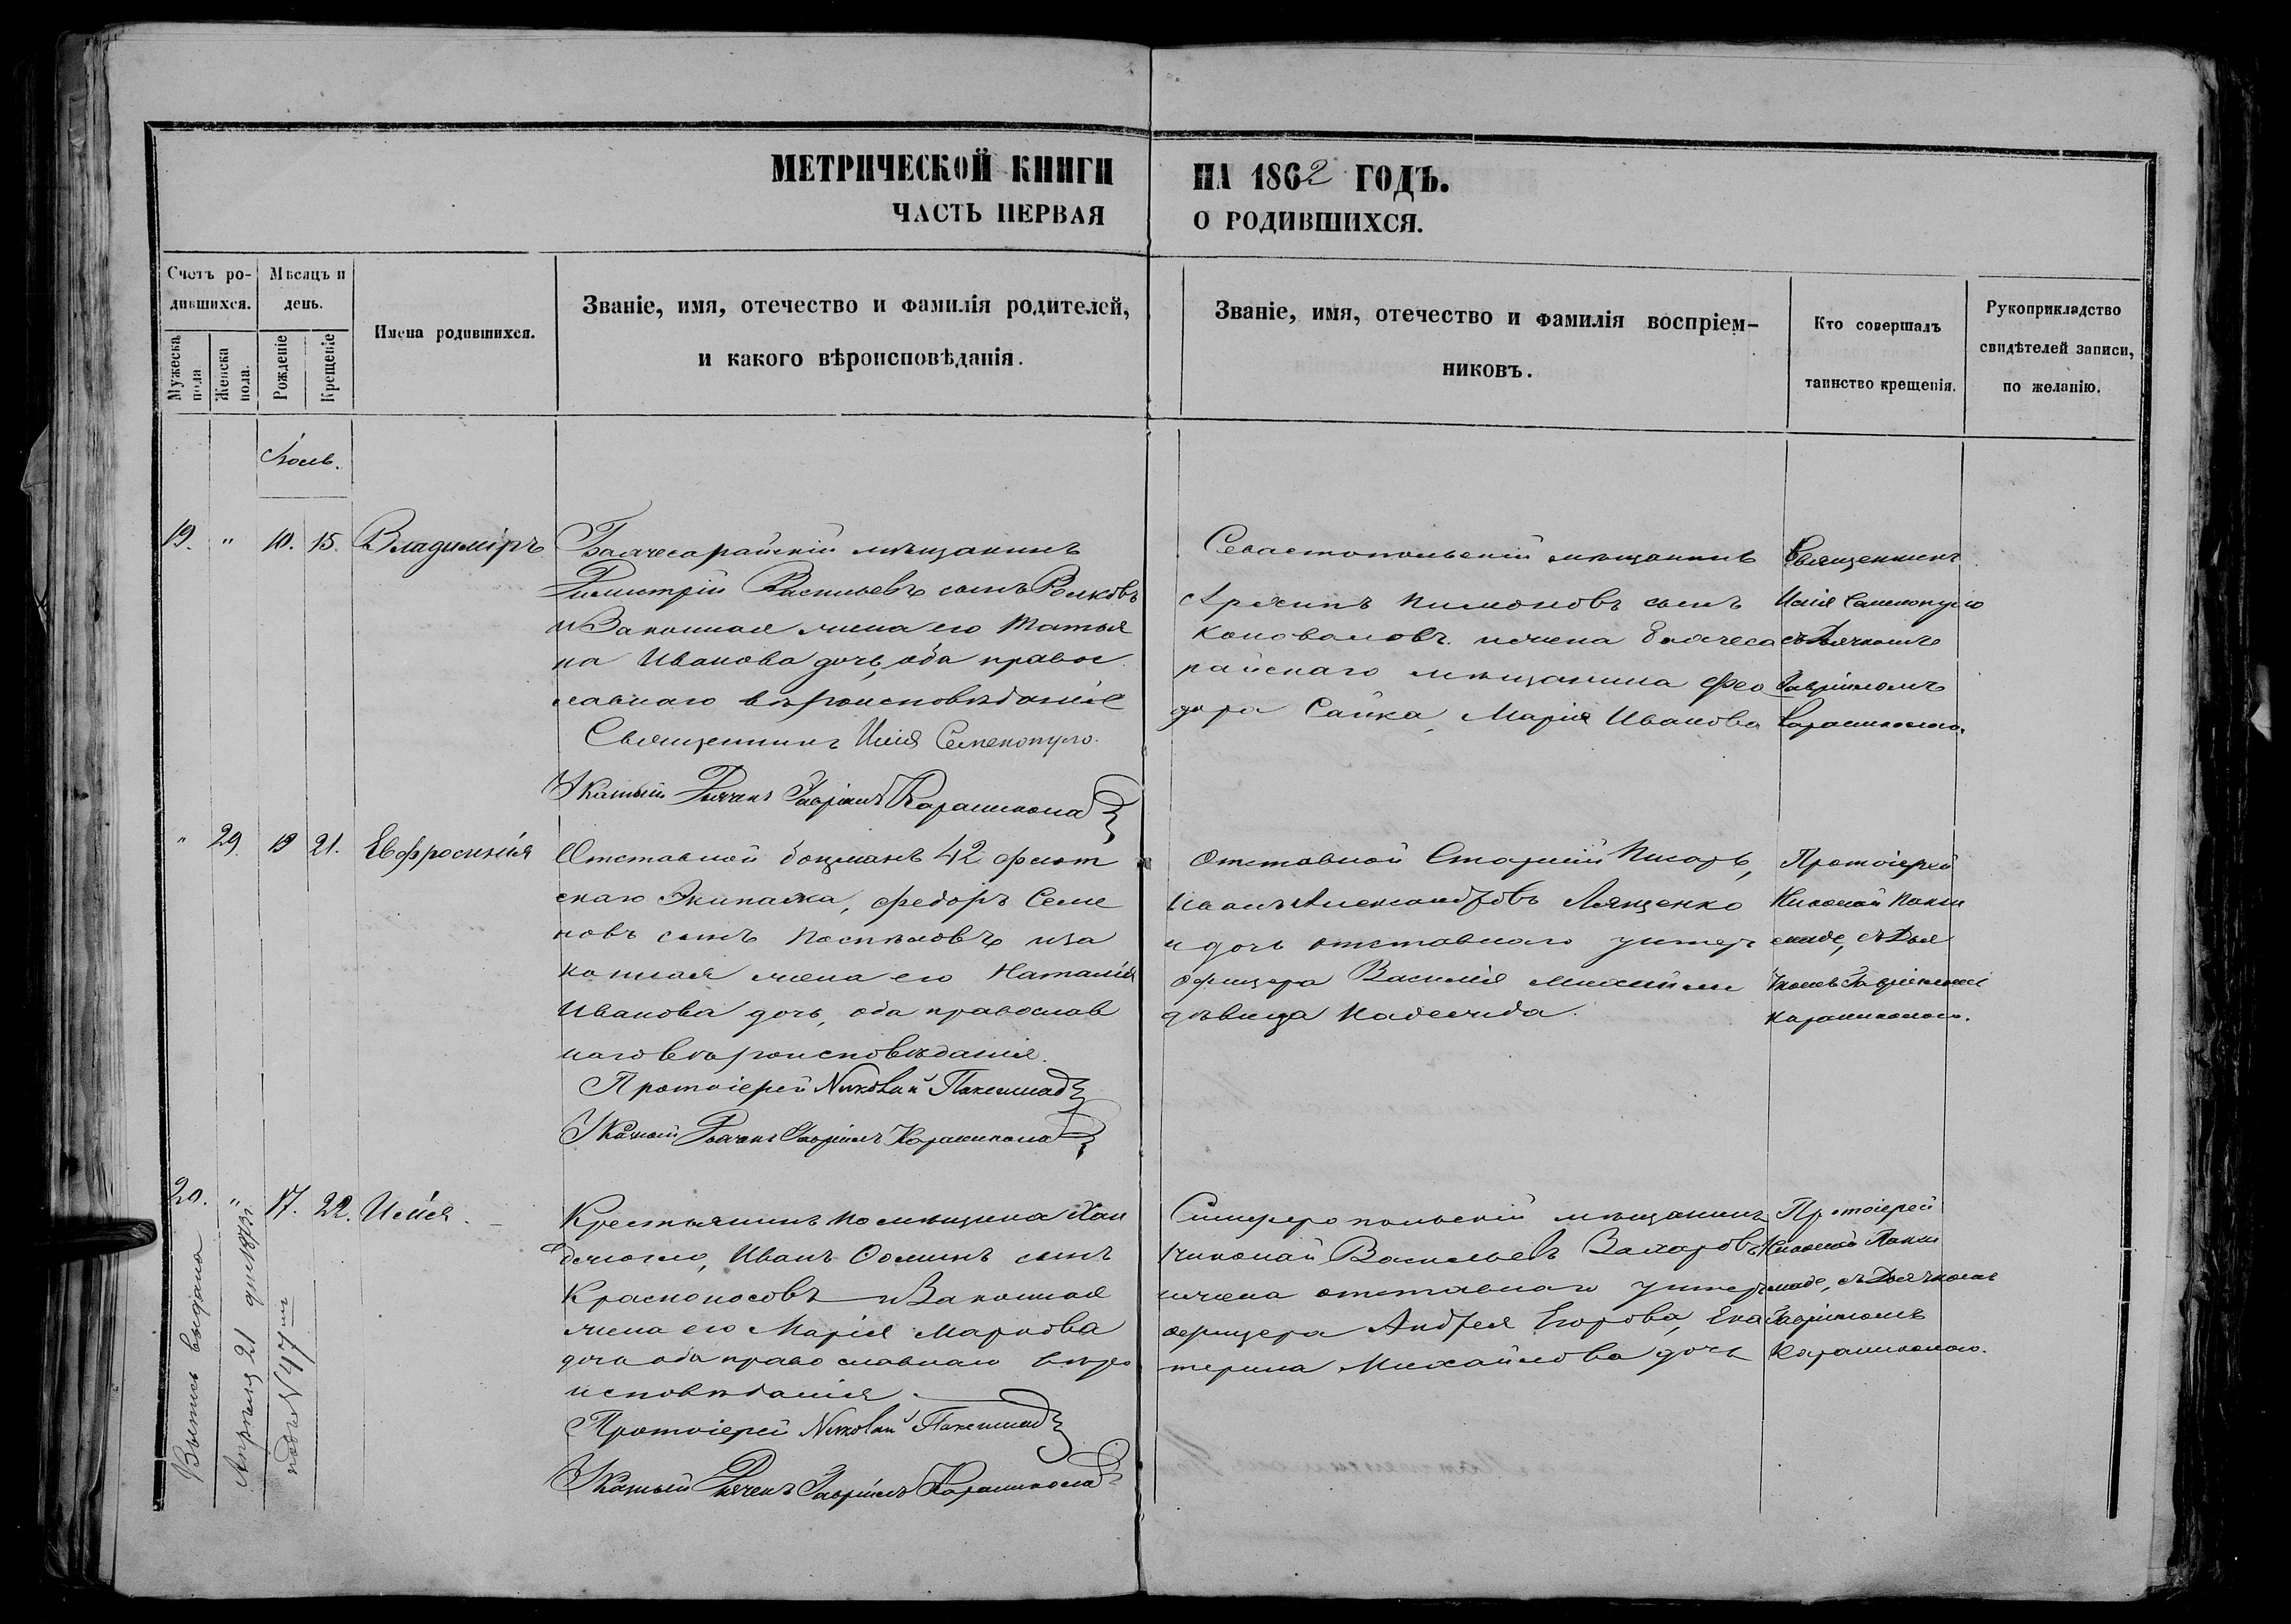 МЕТРИЧЕСКОЙ КНИГИ НА 1862 ГОДЪ.
ЧАСТЬ ПЕРВАЯ О РОДИВШИХСЯ.
Счетъ ро-
дившихся.
Мужеска
пола
Женска
пола.
Мѣсяцъ и
день.
Рождение
Крещеніе
Имена родившихся.
Званіе, имя, отечество и фамилія родителей,
и какого вѣроисповѣданія.
Званіе, имя, отечество и фамилія воспріем-
никовъ.
Кто совершалъ
таинство крещенія.
Рукоприкладство
свидѣтелей записи,
по желанію.
Іюль.
19. " 10. 15. Владиміръ
Бахчесарайскій мѣщанинъ
Димитрій Васильевъ сынъ Волковъ
и Законная жена его Татья
на Иванова дочь, оба правос
лавнаго вѣроисповѣданія
Священникъ Илія Семенопуло.
Указный Дьячекъ Гавріилъ
Севастопольскій мѣщанинъ
Пимоновъ сынъ
Коноваловъ. и жена Бахчеса
райскаго мѣщанина Фео
дора Сайка, Марія Иванова
Священникъ
Илія Семенопуло
съ Дьячкомъ
Гавріиломъ
" 29. 19 21. Евфросинія
Отставной боцманъ 42 флот
скаго Экипажа, Федоръ Семе
новъ сынъ Поспѣловъ и за
конная жена его Наталія
Иванова дочь, оба православ
наго вѣроисповѣданія.
Протоіерей Николай
Указный Дьячекъ Гавріилъ
Отставной Старшій Писарь,
Иванъ Александровъ Лященко
и дочь отставнаго унтеръ
офицера Василія
дѣвица Надежда.
Протоіерей
Николай
съ Дья
чкомъ Гавріиломъ
20. " 17. 22. Илія.
Крестьянинъ помѣщика
Иванъ Ооминъ сынъ
Красноносовъ и Законная
жена его Марія Маркова
дочь оба православнаго вѣро
исповѣданія.
Протоіерей Николай
Указный Дьячекъ Гавріилъ
Симферопольскій мѣщанинъ
Николай Васильевъ Захаровъ
и жена отставнаго унтеръ
офицера Андрея Егорова, Ека
терина Михайлова дочь
Протоіерей
Николай
съ Дьячкомъ
Гавріиломъ
Выпись выдана
Апрѣля 21 дня 1873 г.
подъ N 47 мъ